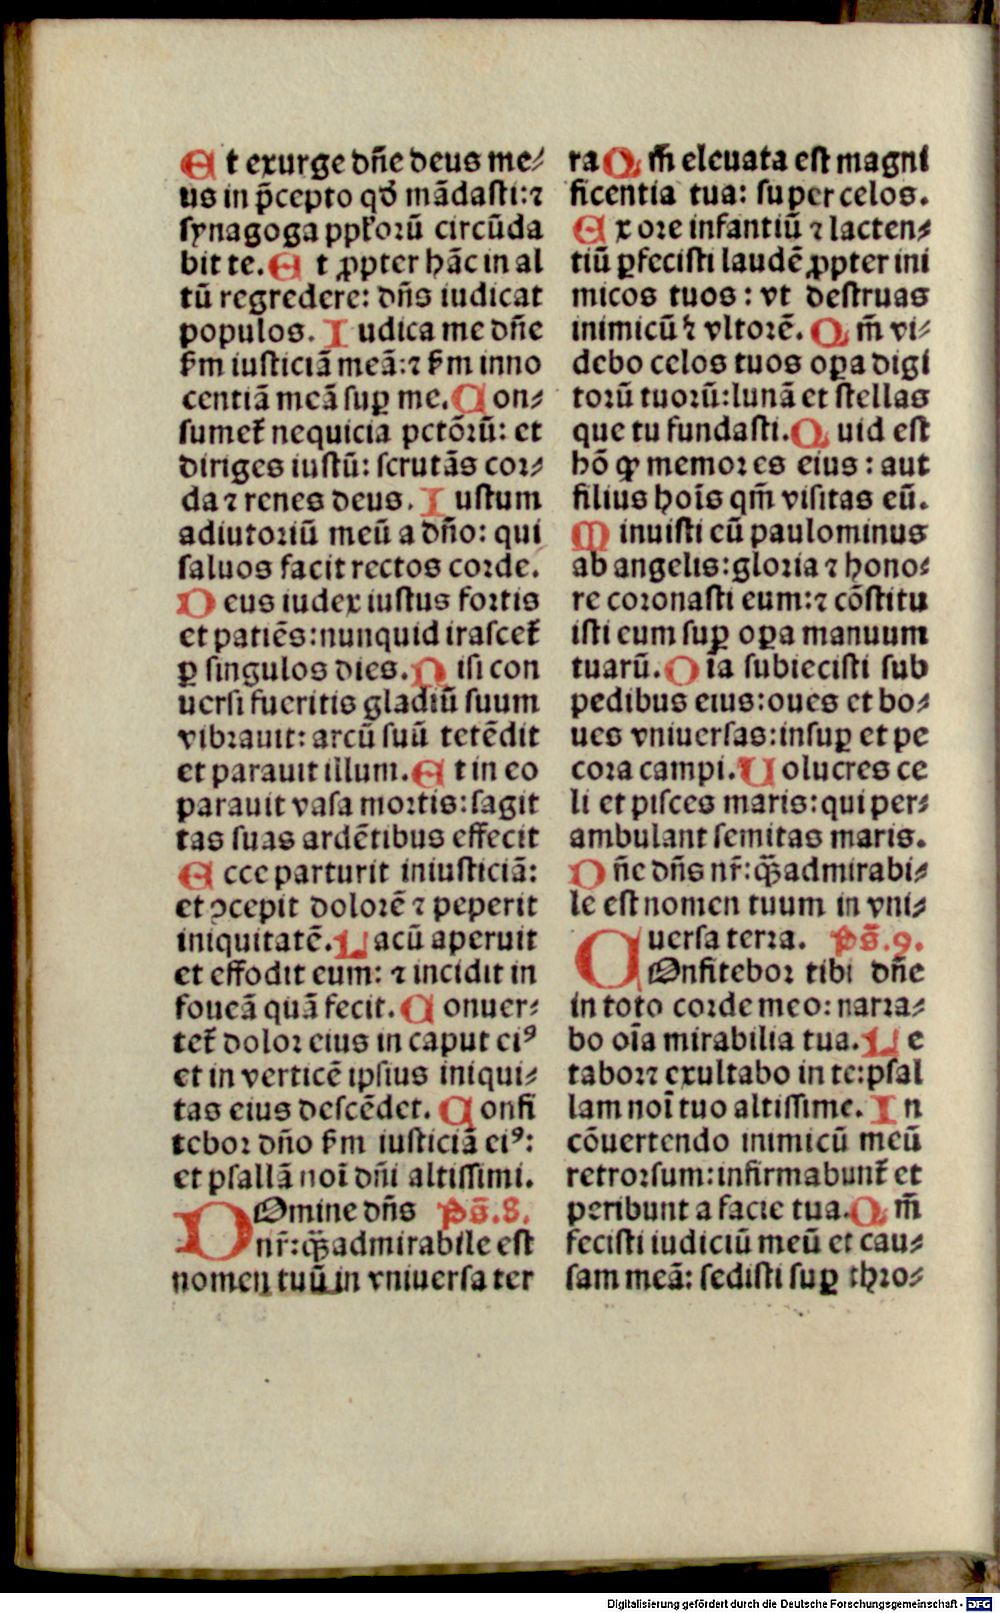 Et exurge dñe deus me⸗
us in p̃cepto qđ mãdasti:⁊
synagoga pplor̃ũ circũda
bit te. Et ꝓpter hãc in al
tũ regredere: dñs iudicat
populos. Iudica me dñe
ẜm iusticiã meã:⁊ ẜm inno
centiã meã suꝑ me. Con⸗
sumet̃ nequicia pctõꝛũ: et
diriges iustũ: scrutãs coꝛ⸗
da ⁊ renes deus. Iustum
adiutoꝛiũ meũ a dño: qui
saluos facit rectos coꝛde.
Deus iudex iustus foꝛtis
et patiẽs: nunquid irascet̃
ꝑ singulos dies. Nisi con
uersi fueritis gladiũ suum
vibꝛauit: arcũ suũ tetẽdit
et parauit illum. Et in eo
parauit vasa moꝛtis: sagit
tas suas ardẽtibus effecit
Ecce parturit iniusticiã:
et ꝯcepit doloꝛẽ ⁊ peperit
iniquitatẽ. Lacũ aperuit
et effodit eum: ⁊ incidit in
foueã quã fecit. Conuer⸗
tet̃ doloꝛ eius in caput eiꝰ
et in verticẽ ipsius iniqui⸗
tas eius descẽdet. Confi
teboꝛ dño ẜm iusticiã eiꝰ:
et psallã noĩ dñi altissimi.
DOmine dñs Ps̃.8.
nr̃: q̃ꝫ admirabile est
nomen tuũ in vniuersa ter
ra Qm̃ eleuata est magni
ficentia tua: super celos.
Ex oꝛe infantiũ ⁊ lacten⸗
tiũ ꝑfecisti laudẽ ꝓpter ini
micos tuos: vt destruas
inimicũ ⁊ vltoꝛẽ. Qm̃ vi⸗
debo celos tuos oꝑa digi
toꝛũ tuoꝛũ: lunã et stellas
que tu fundasti. Quid est
hõ ꝙ memoꝛes eius: aut
filius hoĩs qm̃ visitas eũ.
Minuisti eũ paulominus
ab angelis: gloꝛia ⁊ hono⸗
re coꝛonasti eum:⁊ cõstitu
isti eum suꝑ oꝑa manuum
tuarũ. Oĩa subiecisti sub
pedibus eius: oues et bo⸗
ues vniuersas: insuꝑ et pe
coꝛa campi. Uolucres ce
li et pisces maris: qui per⸗
ambulant semitas maris.
Dñe dñs nr̃: q̃ꝫ admirabi⸗
le est nomen tuum in vni⸗
uersa terꝛa. Ps̃.9.
COnfiteboꝛ tibi dñe
in toto coꝛde meo: narꝛa⸗
bo oĩa mirabilia tua. Le
taboꝛ⁊ exultabo in te: psal
lam noĩ tuo altissime. In
cõuertendo inimicũ meũ
retroꝛsum: infirmabunt̃ et
peribunt a facie tua. Qm̃
fecisti iudiciũ meũ et cau⸗
sam meã: sedisti suꝑ thꝛo⸗
Digitalisierung gefördert durch die Deutsche Forschungsgemeinschaft - DFG